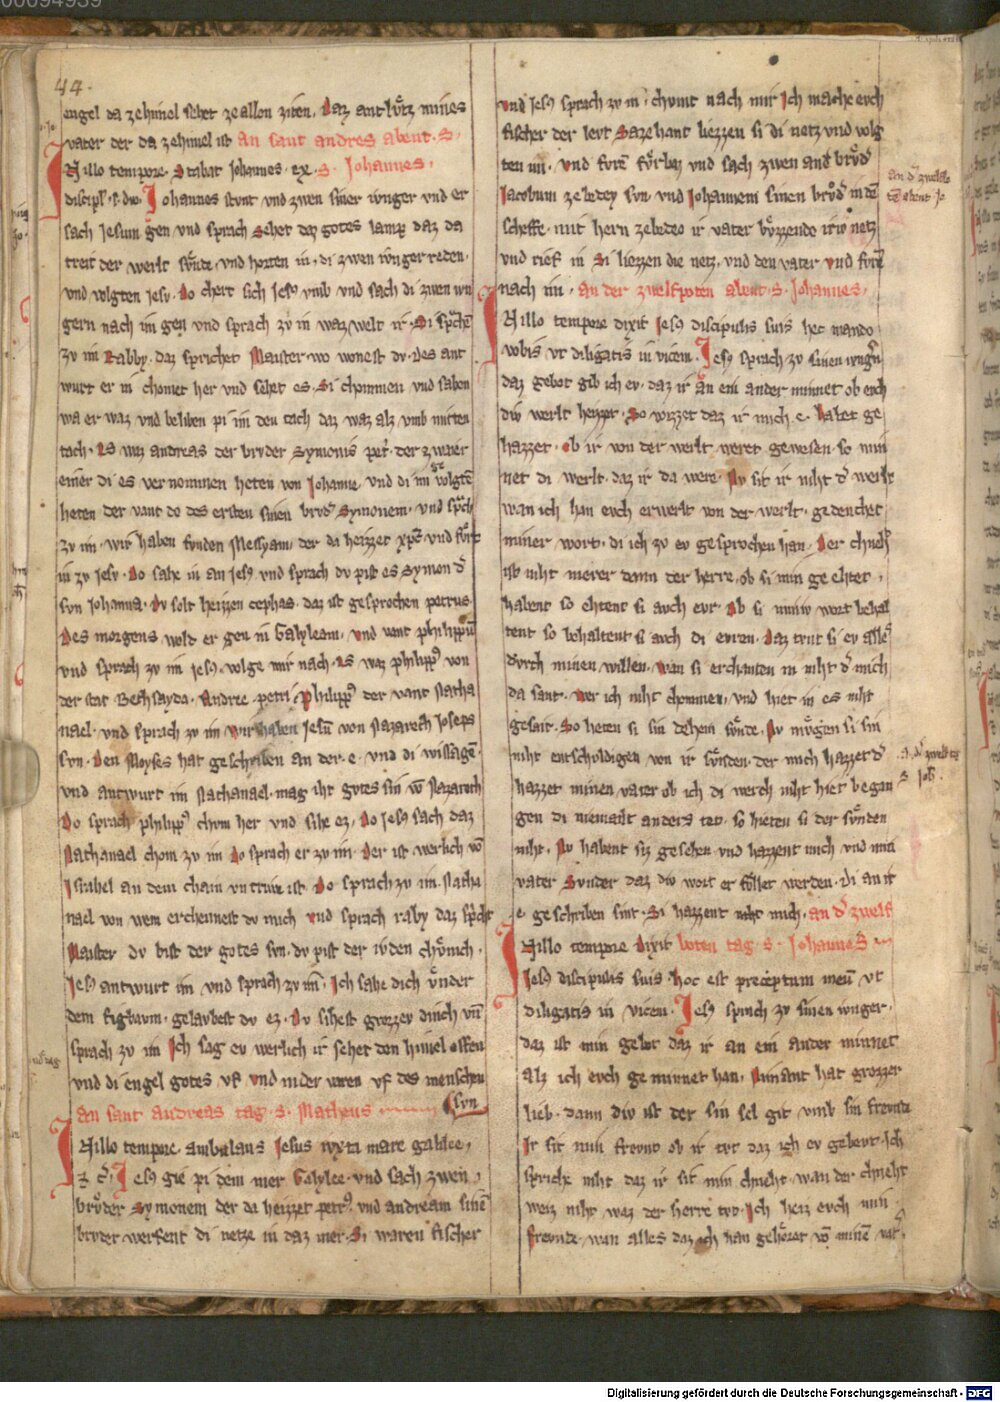 44.
engel da zehimel sehet zeallen ziten. Daz antlvͤtz mines
vater der da zehimel ist an sant andres abent. S.
In illo tempore. Stabat Johannes. ex. S. Johannes.
discipl. Johannes stvnt vnd zwen siner ivnger vnd er
sach Jesum gen vnd sprach Sehet daz gotes lamp daz da
treit der werlt svͤnde. vnd horten in. di zwen ivnger reden.
vnd volgten Jesv. Do chert sich Jesꝰ vmb vnd sach di zwen ivn
gern nach im gen vnd sprach zv in waz welt ir. Si sprͣchē
zv im Rabby. daz sprichet Maister wo wonest dv. Des ant
wurt er in chomet her vnd sehet es. Si chommen vnd sahen
wa er waz vnd beliben pi im den tach daz waz alz vmb mitten
tach. Es waz andreas der brvder Symonis petꝰ. der zweier
einer di es vernommen heten von Johanne. vnd di im gevolgtē
heten der vant do des ersten sinen brvdꝰ Symonem. vnd sprͣch
zv im. wir haben fvnden Messyam. der da heizzet xpc̄ vnd fvͦrt
in zv Jesv. Do sahe in an Jesꝰ vnd sprach dv pist es Symon dꝰ
svn Johanna. Dv solt heizzen cephas. daz ist gesprochen petrus.
Des morgens wold er gen in Galyleam. vnd vant philippū
vnd sprach zv im Jesꝰ. volge mir nach. Es waz philippꝰ von
der stat Bethsayda. Andree. petri. Philippꝰ der vant Natha
nael. vnd sprach zv im wir haben Jesū von Nazareth Joseps
svn. Den Moyses hat geschriben an der. e. vnd di wissagē.
vnd antwurt im Nathanael. mag iht gvtes sin vō Nazareth
Do sprach philippꝰ chvm her vnd sihe ez. Do Jesꝰ sach daz
Nathanael chom zv im Do sprach er zv im. Der ist werlich vō
Israhel an dem chain vntriwe ist. Do sprach zv im. Natha
nael von wem erchennest dv mich vnd sprach raby daz sprͥcht
Maister dv bist der gotes svn. dv pist der ivden chvͤnich.
Jesꝰ antwurt im vnd sprach zv im. Ich sahe dich vͦnder
dem figbavm. gelavbest dv ez. Dv sihest grozzer dinch vn̄
sprach zv im Ich sag ev werlich ir sehet den himel offen
vnd di engel gotes vf vnd nider varen vf des menschen
an sant andreas tag. S. Matheus svn
In illo tempore. ambulans Jesus iuxta mare galilee.
⁊ cꝰ. Jesꝰ gie pi dem mer Galylee. vnd sach zwen
brvͤder Symonem der da heizzet petrꝰ. vnd andream sinē
brvder werfent di netze in daz mer. Si waren fischer
vnd Jesꝰ sprach zv in. chvmt nach mir Ich mache evch
fischer der levt Sazehant liezzen si di netz vnd volg
ten im. vnd fvrē fvͤrbaz vnd sach zwen andꝰ brvͤdꝰ
Jacobum zebedey svn. vnd Johannem sinen brvͦdꝰ in dē
scheffe. mit hern zebedeo ir vater bvͤzzende iriv netz
vnd rief in Si liezzen die netz. vnd den vater vnd fvrē
nach im. an der zwelfpoten abent. S. Johannes.
In illo tempore dixit Jesꝰ discipulis suis hec mando
vobis vt diligatis in vicem. Jesꝰ sprach zv sinen ivngrn̄
daz gebot gib ich ev. daz ir an ein ander minnet ob evch
div werlt hezzet. So wizzet daz ir mich. e. habet ge
hazzet. ob ir von der werlt weret gewesen. so min
net di werlt. daz ir da were. Nv sit ir niht dꝰ werlt
wan ich han evch erwelt von der werlt. gedenchet
miner wort. di ich zv ev gesprochen han. Der chneht
ist niht merer dann der herre. ob si min ge ehtet.
habent so ehtent si avch evr. Ob si miniv wort behal
tent so behaltent si avch di evren. Daz tvnt si ev allez
dvrch minen willen. wan si erchanten in niht dꝰ mich
da sant. wer ich niht chommen. vnd hiet in es niht
gesait. So heten si sin dehein svͤnde. Nv mvͤgen si sin
niht entschuldigen von ir svͤnden. der mich hazzet dꝰ
hazzet minen vater ob ich di werch niht hiet began
gen di niemant anders tet. so hieten si der svͤnden
niht. Nv habent siz gesehen vnd hazzent mich vnd min
vater Svnder daz div wort er fvͤllet werden. di an ir
e. geschriben sint. Si hazzent niht mich. an dꝰ zwelf
In illo tempore dixit boten tag. S. Johannes
Jesꝰ discipulis suis. hoc est preceptum meū vt
diligatis in vicem. Jesꝰ sprach zv sinen ivnger.
daz ist min gebot daz ir an ein ander minnet
alz ich evch geminnet han. Nimant hat grozzer
lieb. dann div ist der sin sel git vmb sin frevnde
Ir sit min frevnt ob ir tvt daz ich ev gebevt. Ich
spriche niht daz ir sit min chneht. wan der chneht
weiz niht waz der herre tvt. Ich heiz evch min
frevnde. wan alles daz ich han gehoͤrt vō minē vatꝰ
an dꝰ zwelf
Digitalisierung gefördert durch die Deutsche Forschungsgemeinschaft - DFG